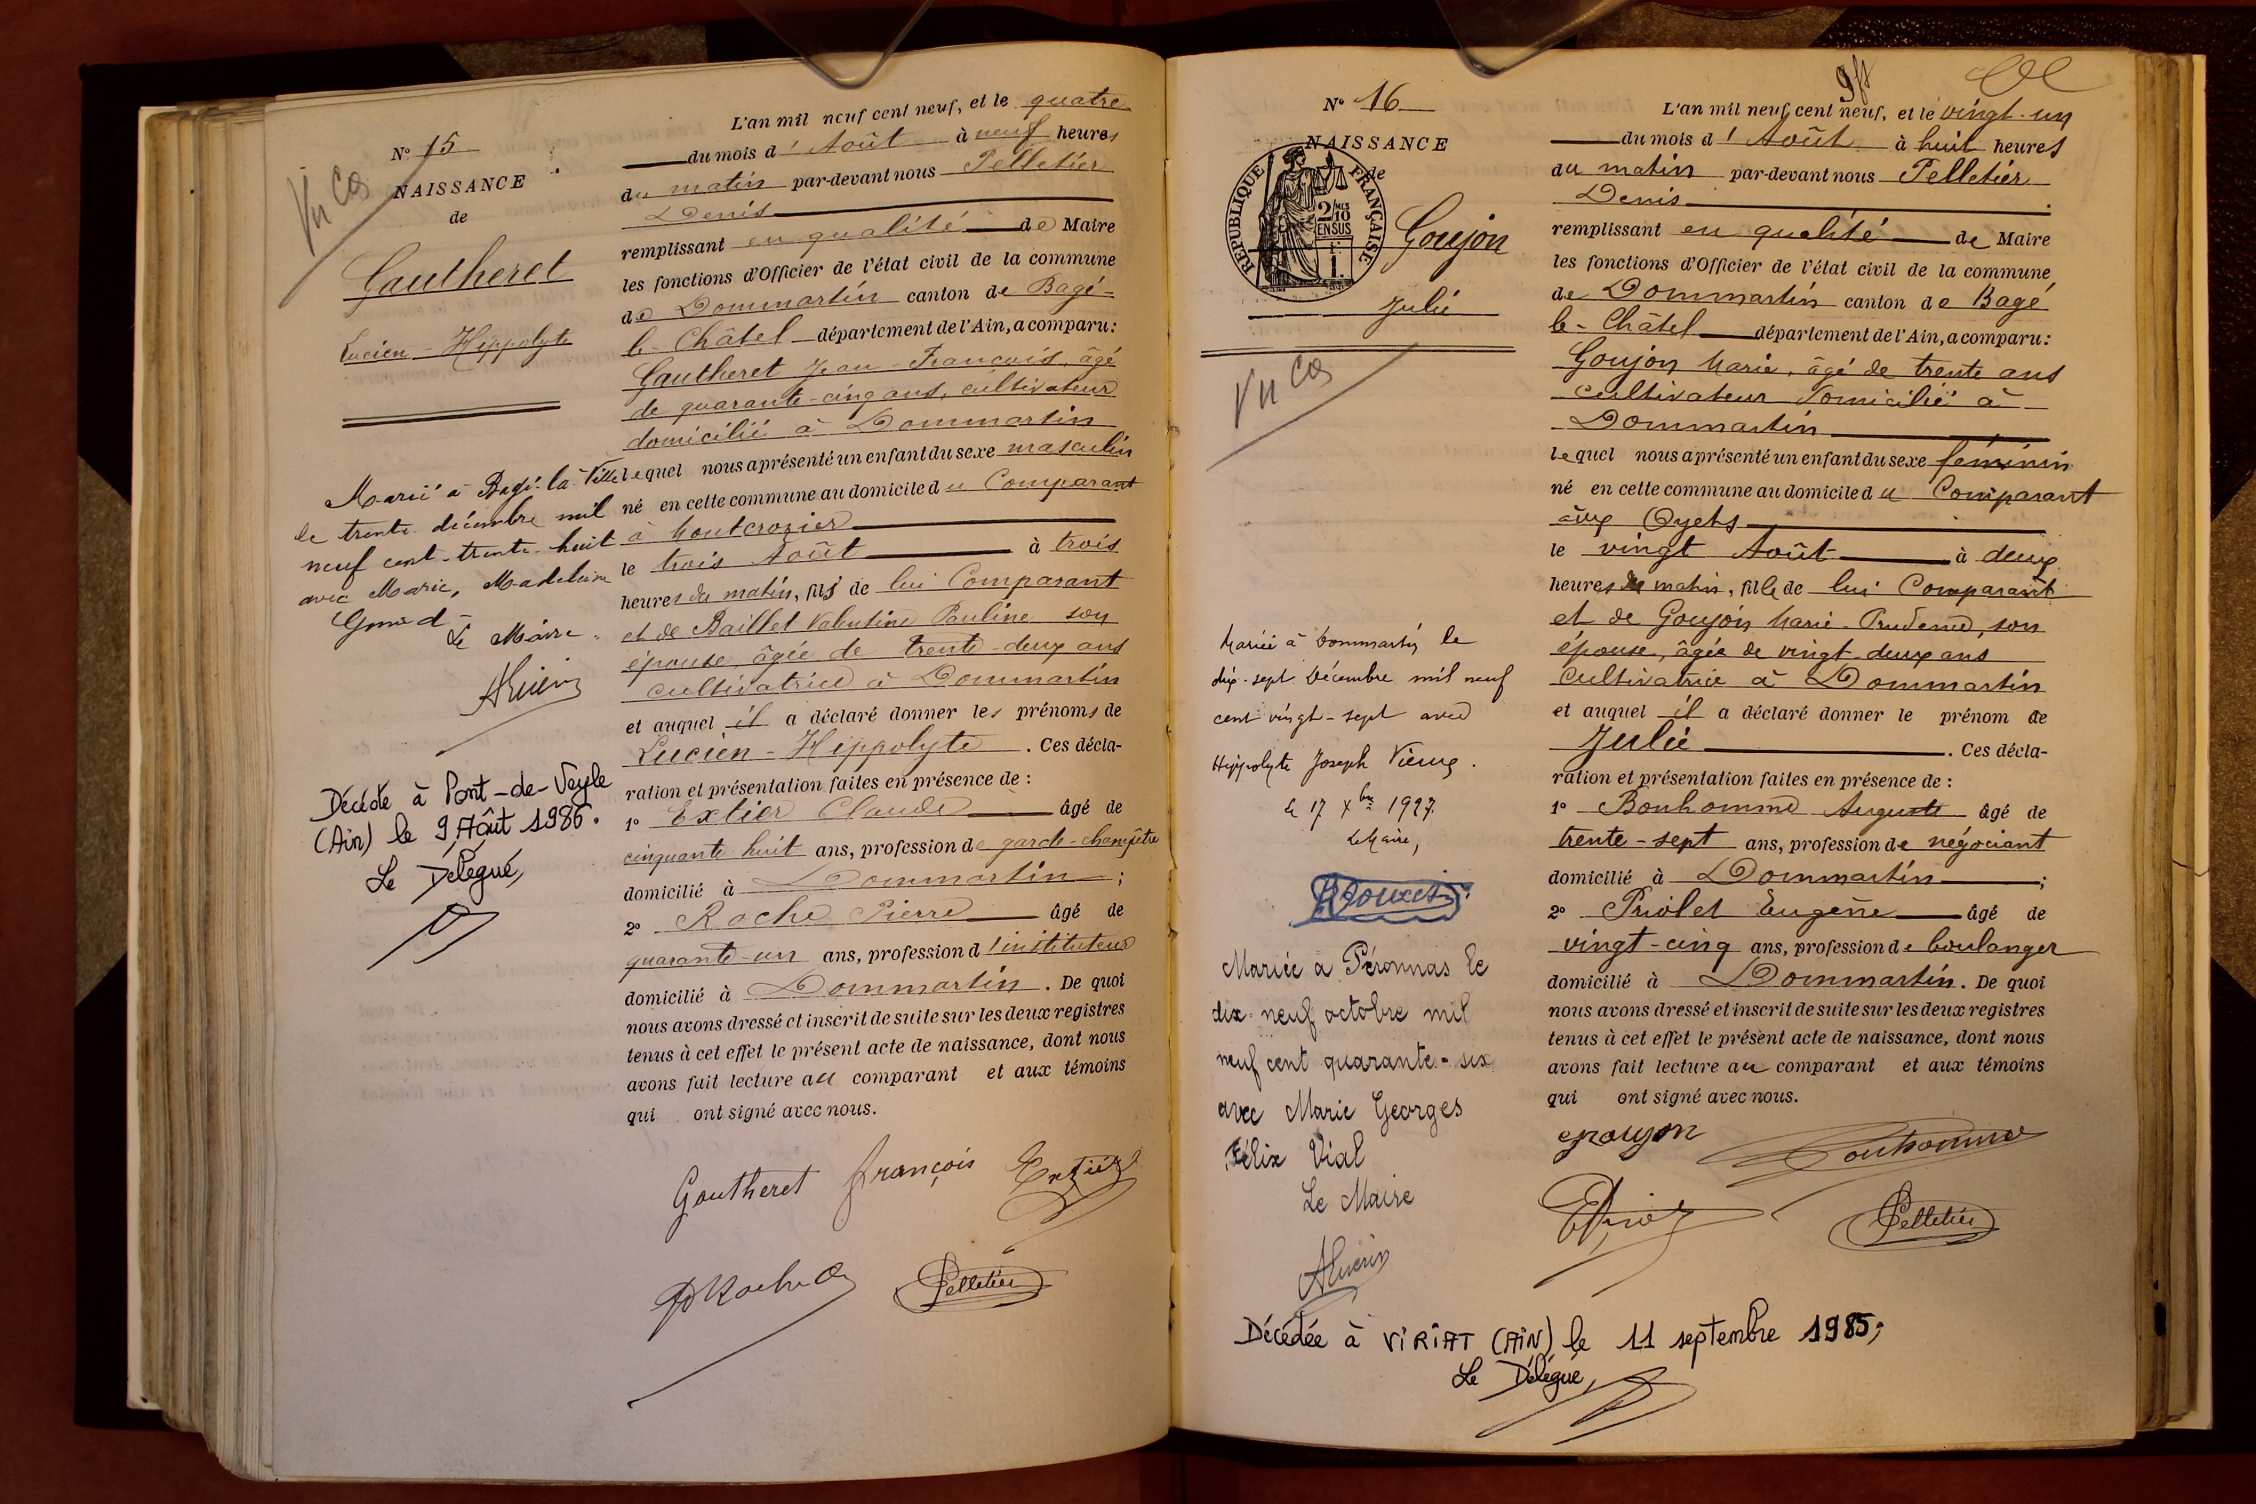 N° 15
NAISSANCE
de
Gautheret
Lucien - Hippolyte
Vu
Marié à Bagé-la-Ville
le trente décembre mil
neuf cent-trente-huit
avec Marie, Madeleine
Le Maire
Décédé à Pont-de-Veyle
(Ain) le 9 Août 1986.
Le Délégué,
L'an mil neuf cent neuf, et le quatre
du mois d'Août à neuf heures
du matin par-devant nous Pelletier
Denis
remplissant en qualité de Maire
les fonctions d'Officier de l'état civil de la commune
de Dommartin canton de Bagé-
le-Châtel département de l'Ain, a comparu:
Gautheret Jean-François, âgé
de quarante-cinq ans, cultivateur
domicilié à Dommartin
lequel nous a présenté un enfant du sexe masculin
né en cette commune au domicile du Comparant
à Montcrozier
le trois Août à trois
heures du matin, fils de lui Comparant
et de Baillet Valentine Pauline son
épouse âgée de trente-deux ans
cultivatrice à Dommartin
et auquel il a déclaré donner les prénoms de
Lucien-Hippolyte. Ces décla-
ration et présentation faites en présence de :
1° Extier Claude âgé de
cinquante huit ans, profession de garde-champêtre
domicilié à Dommartin ;
2° Roche Pierre âgé de
quarante-un ans, profession d'instituteur
domicilié à Dommartin. De quoi
nous avons dressé et inscrit de suite sur les deux registres
tenus à cet effet le présent acte de naissance, dont nous
avons fait lecture au comparant et aux témoins
qui ont signé avec nous.
Gautheret François Extier
Roche
Pelletier
N° 16
NAISSANCE
de
RÉPUBLIQUE FRANÇAISE
2/10 MES
EN SUS
Goujon
Julie
Vu
Mariée à Dommartin le
dix-sept Décembre mil neuf
cent vingt-sept avec
Hippolyte Joseph
le 17 Xbre 1927.
Le Maire,
Mariée à Péronnas le
dix-neuf octobre mil
neuf cent quarante-six
avec Marie Georges
Félix Vial
Le Maire
L'an mil neuf cent neuf, et le vingt-un
du mois d'Août à huit heures
du matin par-devant nous Pelletier
Denis
remplissant en qualité de Maire
les fonctions d'Officier de l'état civil de la commune
de Dommartin canton de Bagé
le-Châtel département de l'Ain, a comparu:
Goujon Marie, âgé de trente ans
cultivateur domicilié à
Dommartin
lequel nous a présenté un enfant du sexe féminin
né en cette commune au domicile du Comparant
aux Oyets
le vingt Août à deux
heures du matin, fille de lui Comparant
et de Goujon Marie-Prudence, son
épouse, âgée de vingt-deux ans
Cultivatrice à Dommartin
et auquel il a déclaré donner le prénom de
Julie. Ces décla-
ration et présentation faites en présence de :
1° Bonhomme Auguste âgé de
trente-sept ans, profession de négociant
domicilié à Dommartin ;
2° Priolet Eugène âgé de
vingt-cinq ans, profession de boulanger
domicilié à Dommartin. De quoi
nous avons dressé et inscrit de suite sur les deux registres
tenus à cet effet le présent acte de naissance, dont nous
avons fait lecture au comparant et aux témoins
qui ont signé avec nous.
goujon Bonhomme
Pelletier
Décédée à VIRIAT (AIN) le 11 septembre 1985;
Le Délégué,